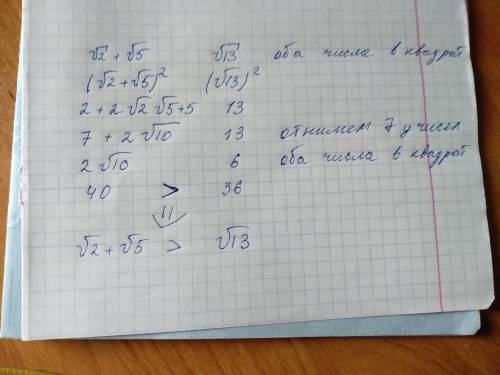 √2 + √5 √13 оба числа в квадрат
(√2 + √5)² (√13)²
2 + 2√2√5 + 5 13
7 + 2√10 13 отнимем 7 у чисел
2√10 6 оба числа в квадрат
40 > 36
⇓
√2 + √5 > √13